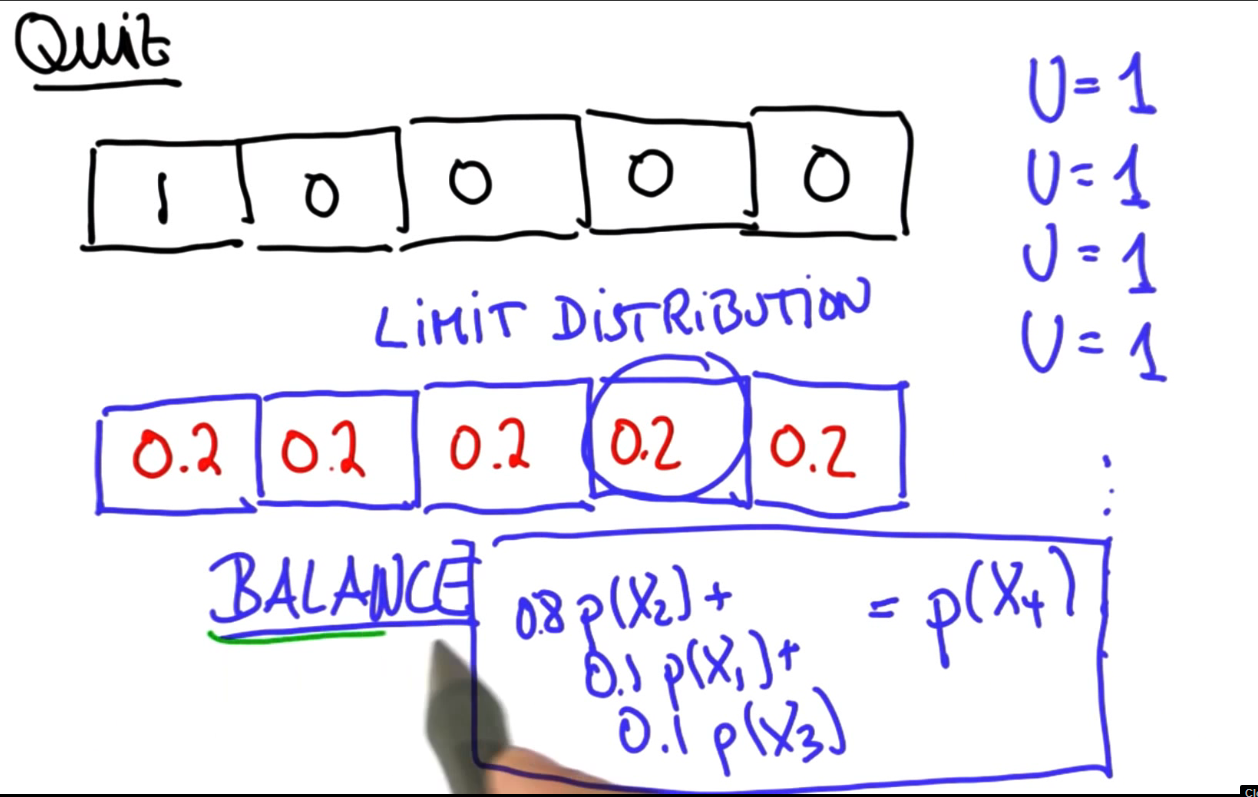 Quiz
1 0 0 0 0
U=1
U=1
U=1
U=1
LIMIT DISTRIBUTION
0.2 0.2 0.2 0.2 0.2
BALANCE
0.8 p(X₂)+
0.1 p(X₁)+
0.1 p(X₃)
= p(X₄)